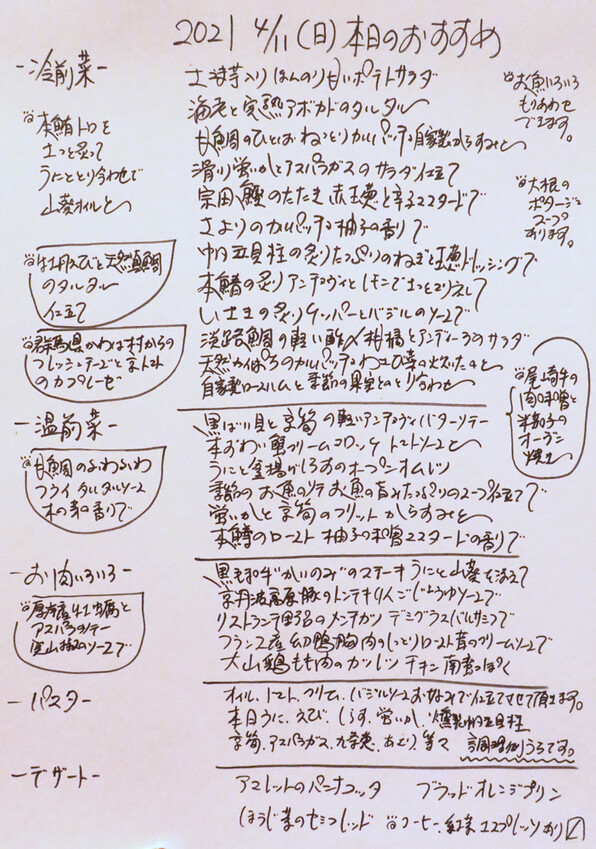 2021 4/11 (日) 本日のおすすめ
-冷前菜-
本鮪トロを
さっと炙って
うにととり合わせて
山葵オイルと
牡丹えびと天然鯛
のタルタル
仕立て
群馬県かわば村からの
フレッシュチーズとトマト
のカプレーゼ
お魚いろいろ
もりあわせ
できます。
大根の
ポタージュ
スープ
あります。
生ハム入り ほんのり甘いポテトサラダ
海老と完熟アボカドのタルタル
甘鯛のひと塩 ねっとりカルパッチョ 自家製からすみと
滑川蛍いかとアスパラガスのサラダ仕立て
宗田鰹のたたき 赤玉葱と辛子マスタードで
さよりのカルパッチョ 柚子の香りで
帆立貝柱の炙り たっぷりのねぎと玉葱ドレッシングで
本鯖の炙り アンチョヴィと
いさきの炙り ケッパーとバジルのソースで
淡路鯛の軽い酢〆 柑橘とアンディーブのサラダ
天然かんぱちのカルパッチョ わさび菜の
自家製ロースハムと季節の果実ととり合わせ
-温前菜-
甘鯛のふわふわ
フライ タルタルソース
木の芽香りで
尾崎牛の
肉味噌と
米茄子の
オーブン
焼き
黒ばい貝と京筍の軽いアンチョヴィバターソテー
本ずわい蟹クリームコロッケ トマトソースと
うにと釜揚げしらすのオープンオムレツ
季節のお魚のソテー お魚の旨みたっぷりのスープ仕立てで
蛍いかと京筍のフリット からすみと
本鱒のロースト 柚子味噌マスタードの香りで
-お肉いろいろ-
厚岸産牡蠣と
アスパラのソテー
実山椒のソースで
黒毛和牛“かいのみ”のステーキ うにと山葵を添えて
京丹波高原豚のトンテキ りんごじょうゆソースで
リストランテ野呂のメンチカツ デミグラスバルサミコで
フランス産幼鴨胸肉のしっとりロースト 茸のクリームソースで
大山鶏もも肉のカツレツ チキン南蛮っぽく
-パスタ-
オイル、トマト、クリーム、バジルソースお好みで仕立てさせて頂きます。
本日うに、えび、しらす、蛍いか、燻製帆立貝柱
京筍、アスパラガス、九条葱、あさり、等々 調理例うらです。
-デザート-
アマレットのパンナコッタ ブラッドオレンジプリン
ほうじ茶のセミフレッド コーヒー、紅茶 エスプレッソあり